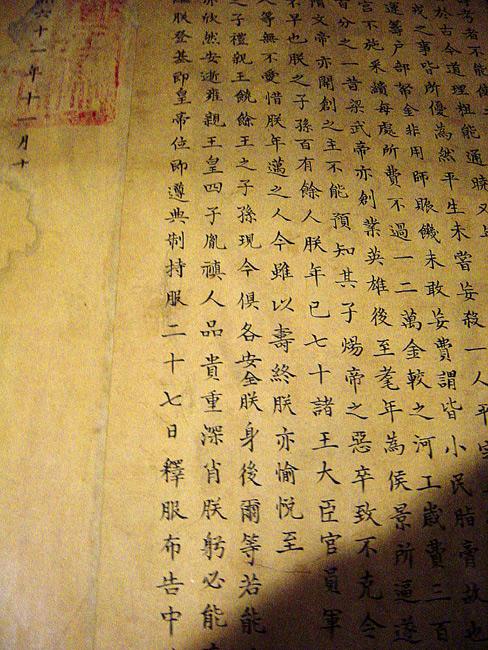 考者不能備
於古今道理粗能通曉又
戎之事皆所優為然平生未嘗妄殺一人平
運籌戶部帑金非用師賑饑未敢妄費謂皆小民脂膏故也
宮不施采繢每處所費不過一二萬金較之河工歲費三百
百分之一昔梁武帝亦創業英雄後至耄年為侯景所逼遂
隋文帝亦開創之主不能預知其子煬帝之惡卒致不克令
不早也朕之子孫百有餘人朕年已七十諸王大臣官員軍
人等無不愛惜朕年邁之人今雖以壽終朕亦愉悅至
之子禮親王饒餘王之子孫現今俱各安全朕身後爾等若能
亦欣然安逝雍親王皇四子胤禛人品貴重深肖朕躬必能
繼朕登基即皇帝位即遵典制持服二十七日釋服布告中
六十一年十一月十